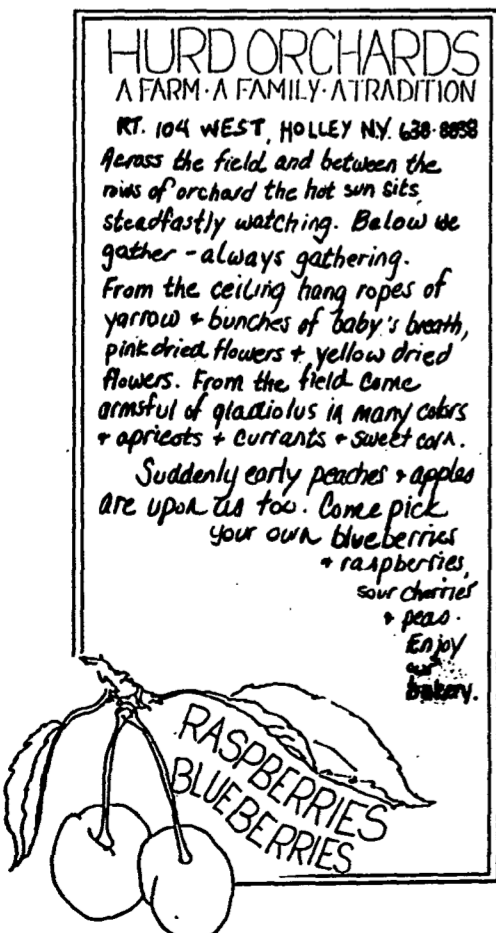 HURD ORCHARDS
A FARM · A FAMILY · A TRADITION
RT. 104 WEST, HOLLEY N.Y. 638-8838
Across the field and between the
rows of orchard the hot sun sits
steadfastly watching. Below we
gather - always gathering.
From the ceiling hang ropes of
yarrow + bunches of baby's breath,
pink dried flowers + yellow dried
flowers. From the field come
armsful of gladiolus in many colors
+ apricots + currants + sweet corn.
Suddenly early peaches + apples
are upon us too. Come pick
your own blueberries
+ raspberries,
sour cherries
+ peas.
Enjoy
our
bakery.
RASPBERRIES
BLUEBERRIES